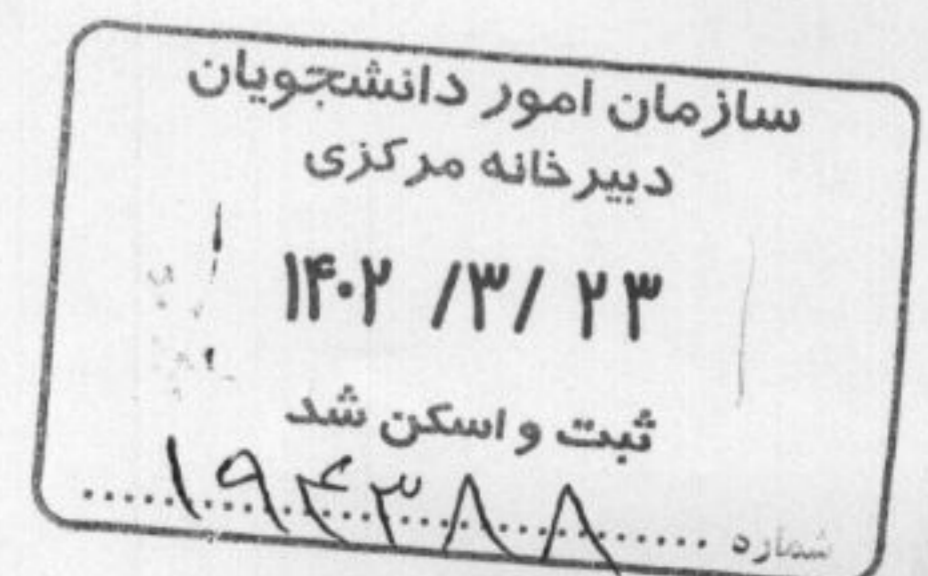 سازمان امور دانشجویان
دبیرخانه مرکزی
۱۴۰۲ /۳/ ۲۳
ثبت و اسکن شد
شماره ۱۹۴۳۸۸